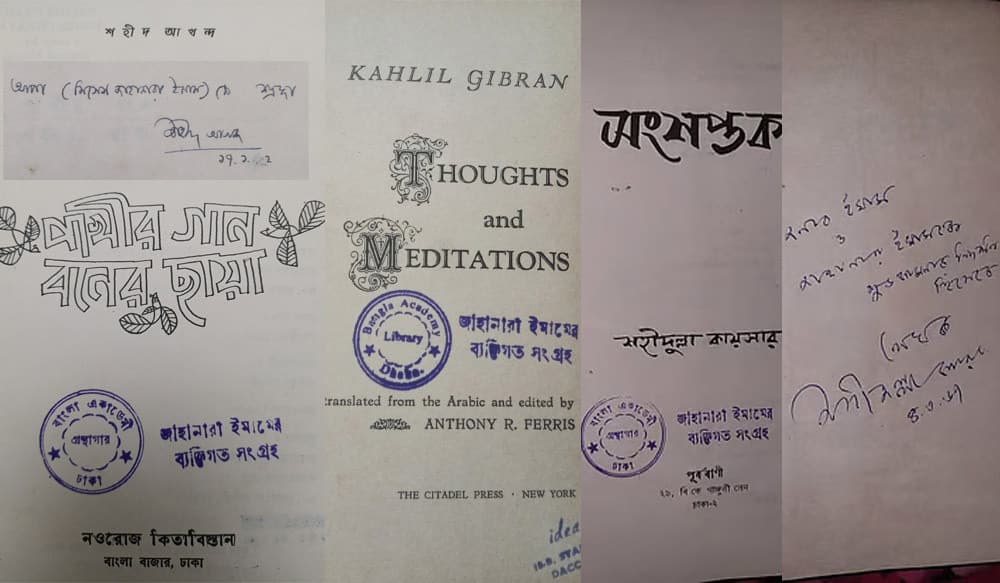 শহীদ আখন্দ
আপা (মিসেস জাহানারা ইমাম) কে শ্রদ্ধা
শহীদ আখন্দ
পাখীর গান
বনের ছায়া
বাংলা একাডেমী
গ্রন্থাগার
ঢাকা
জাহানারা ইমামের
ব্যক্তিগত সংগ্রহ
নওরোজ কিতাবিস্তান
বাংলা বাজার, ঢাকা
KAHLIL GIBRAN
THOUGHTS
and
MEDITATIONS
Bangla Academy
Library
Dhaka.
জাহানারা ইমামের
ব্যক্তিগত সংগ্রহ
translated from the Arabic and edited by
ANTHONY R. FERRIS
THE CITADEL PRESS · NEW YORK
idea
DACC
সংশপ্তক
শহীদুল্লা কায়সার
বাংলা একাডেমী
গ্রন্থাগার
ঢাকা
জাহানারা ইমামের
ব্যক্তিগত সংগ্রহ
পূর্ববাণী
২৯, বি কে গাঙ্গুলী লেন
ঢাকা-২
ইমাম
ও
জাহানারা ইমামকে
শুভ কামনার নিদর্শন
হিসেবে
লেখক